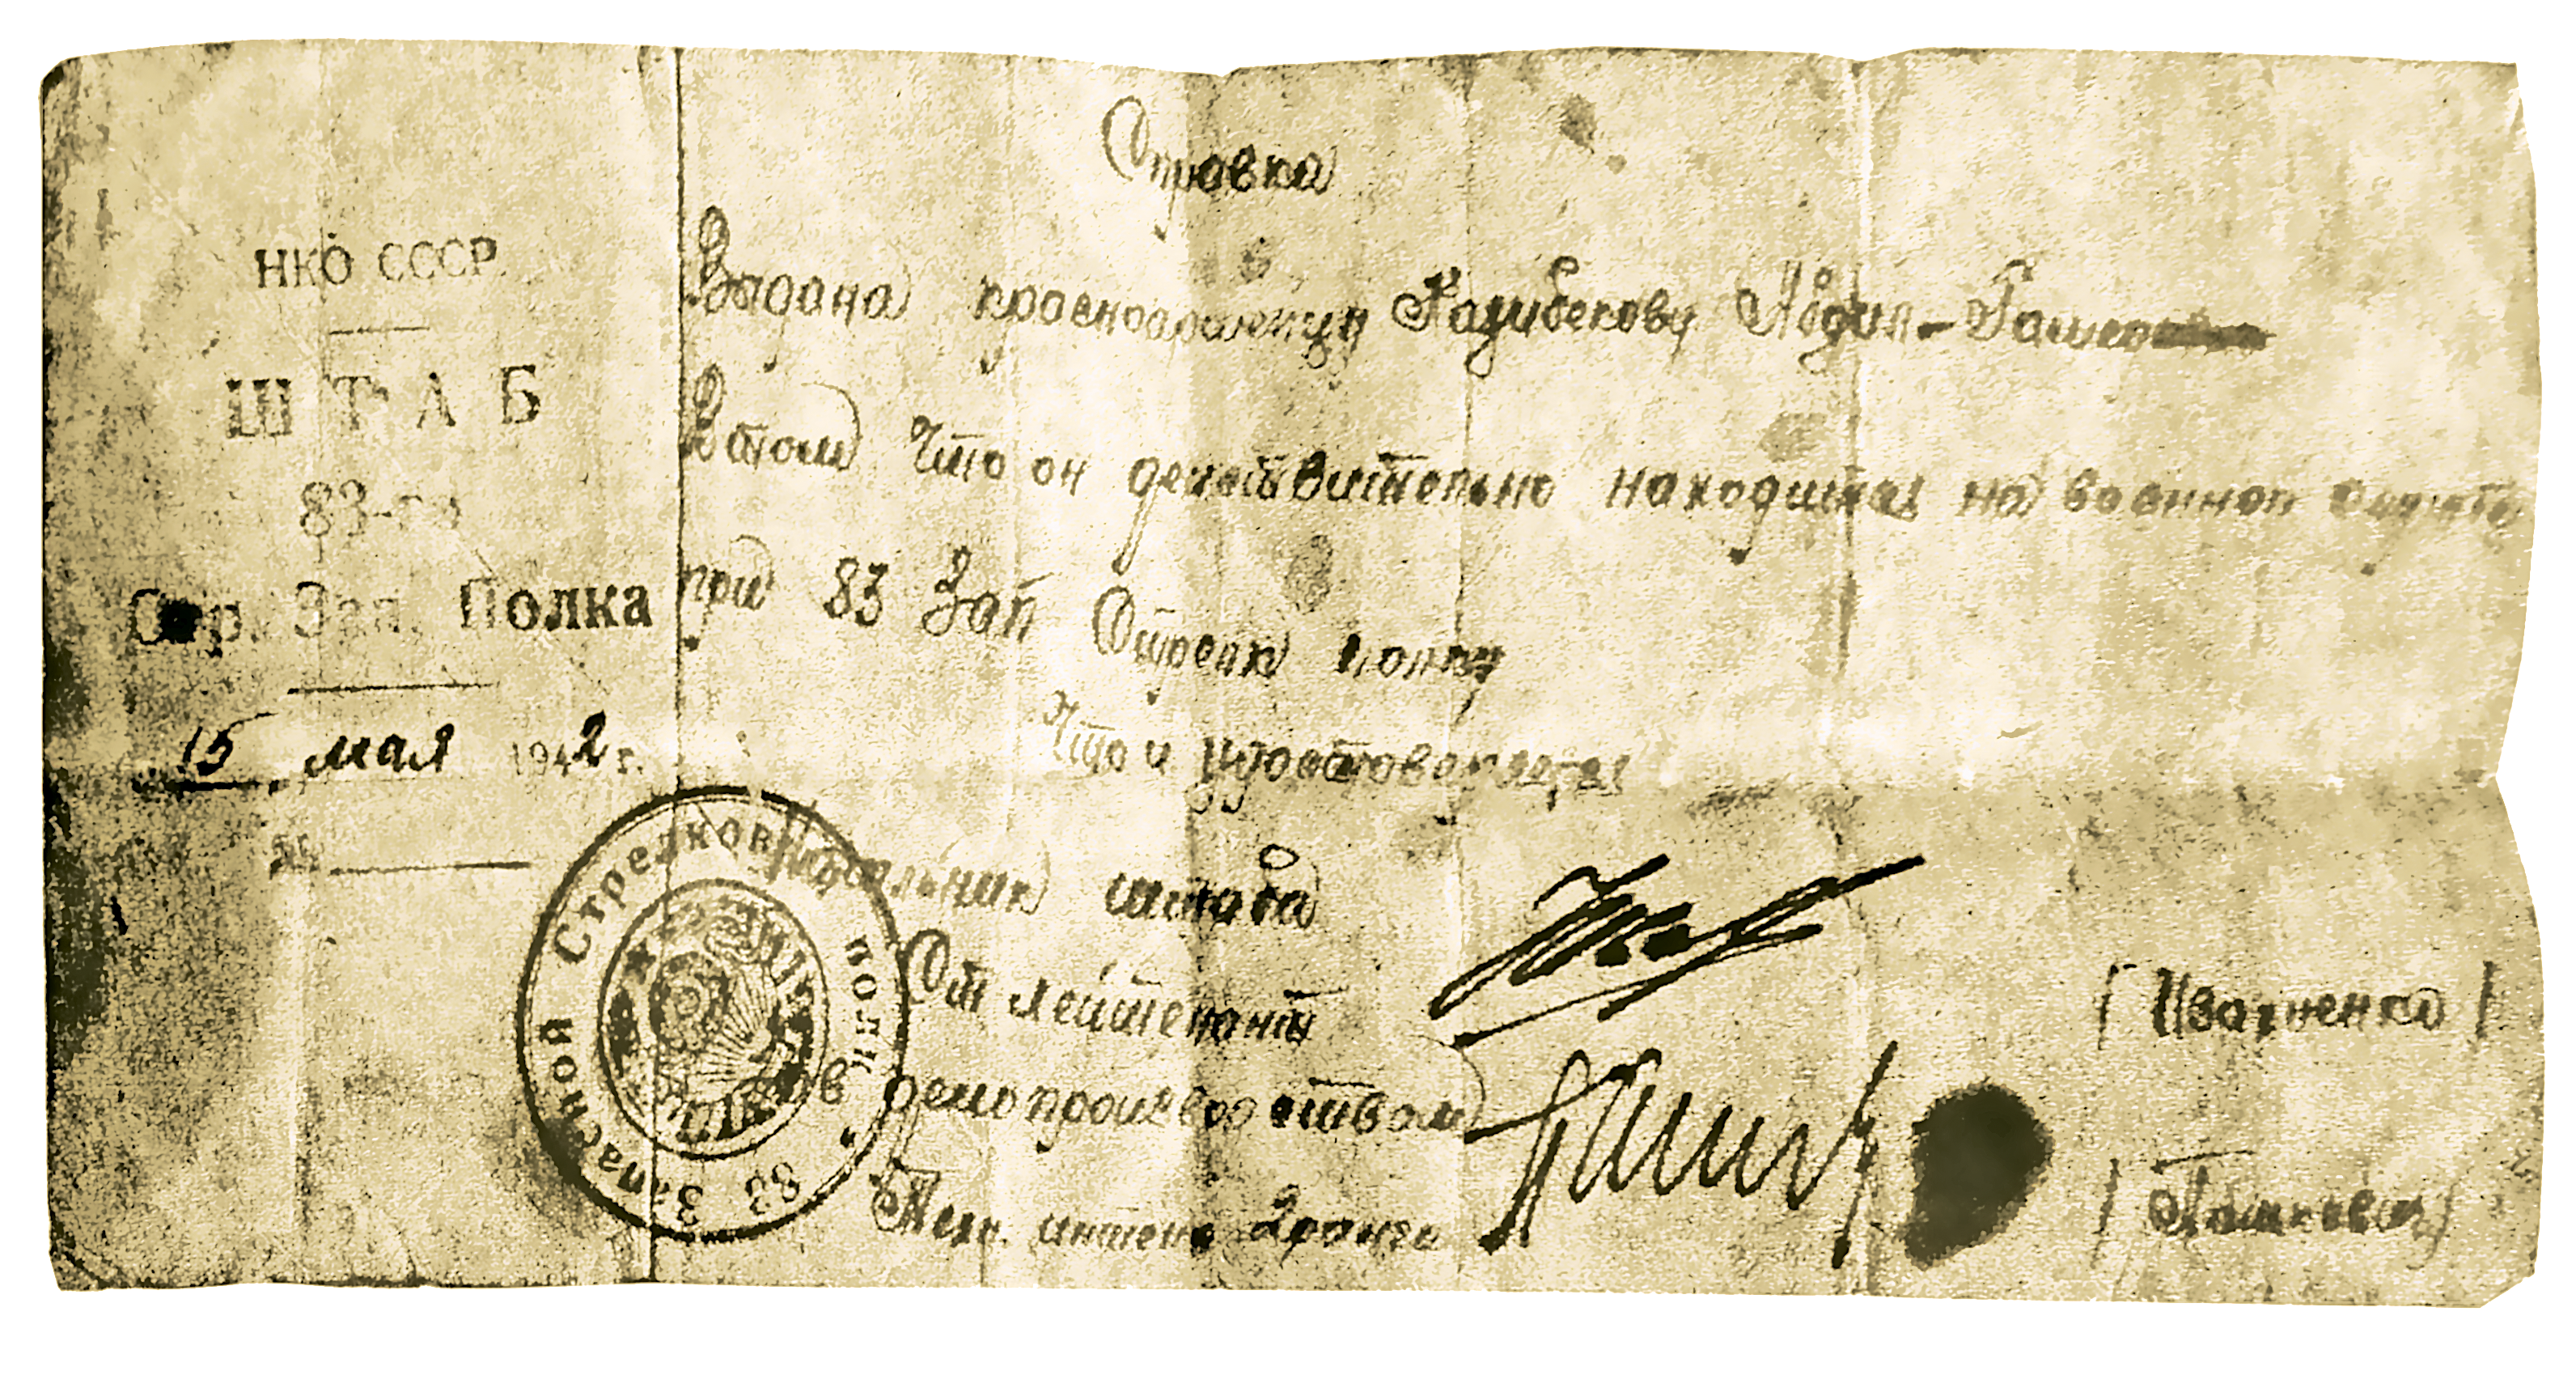 НКО СССР
ШТАБ
83-го
Стр. Зап. Полка
15 мая 1942 г.
№
Справка
Выдана красноармейцу Казибекову Абдул-
В том что он действительно находится на военной службе
при 83 Зап Стрелк полку
Что и удостоверяется
Начальник штаба
Ст лейтенант
Зав делопроизводством
Техн. интен 2 ранга
83 Запасной Стрелковый полк